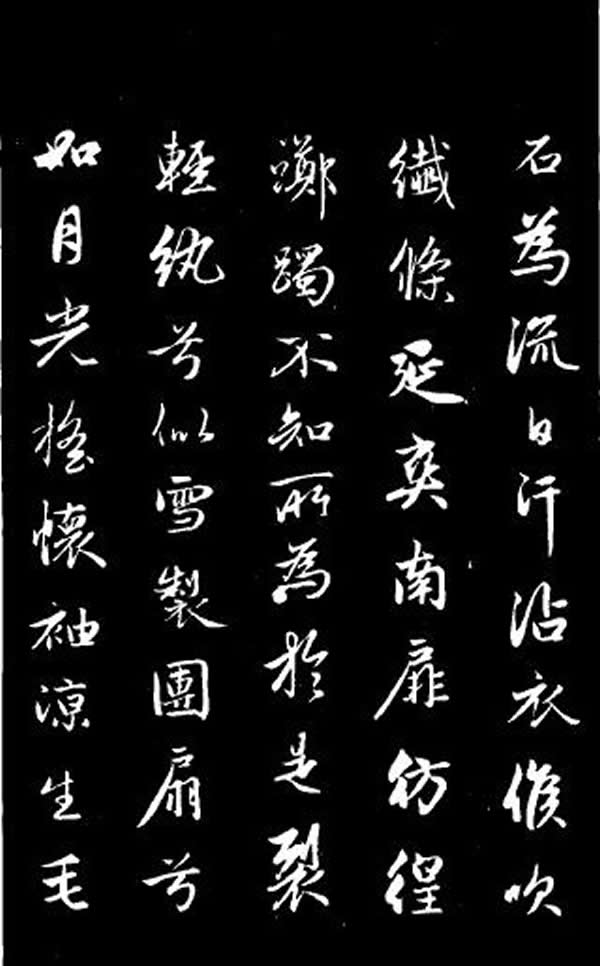 石為流白汗沾衣候吹
纖條延爽南扉彷徨
躑躅不知所為於是裂
輕紈兮似雪製團扇兮
如月光搖懷袖涼生毛